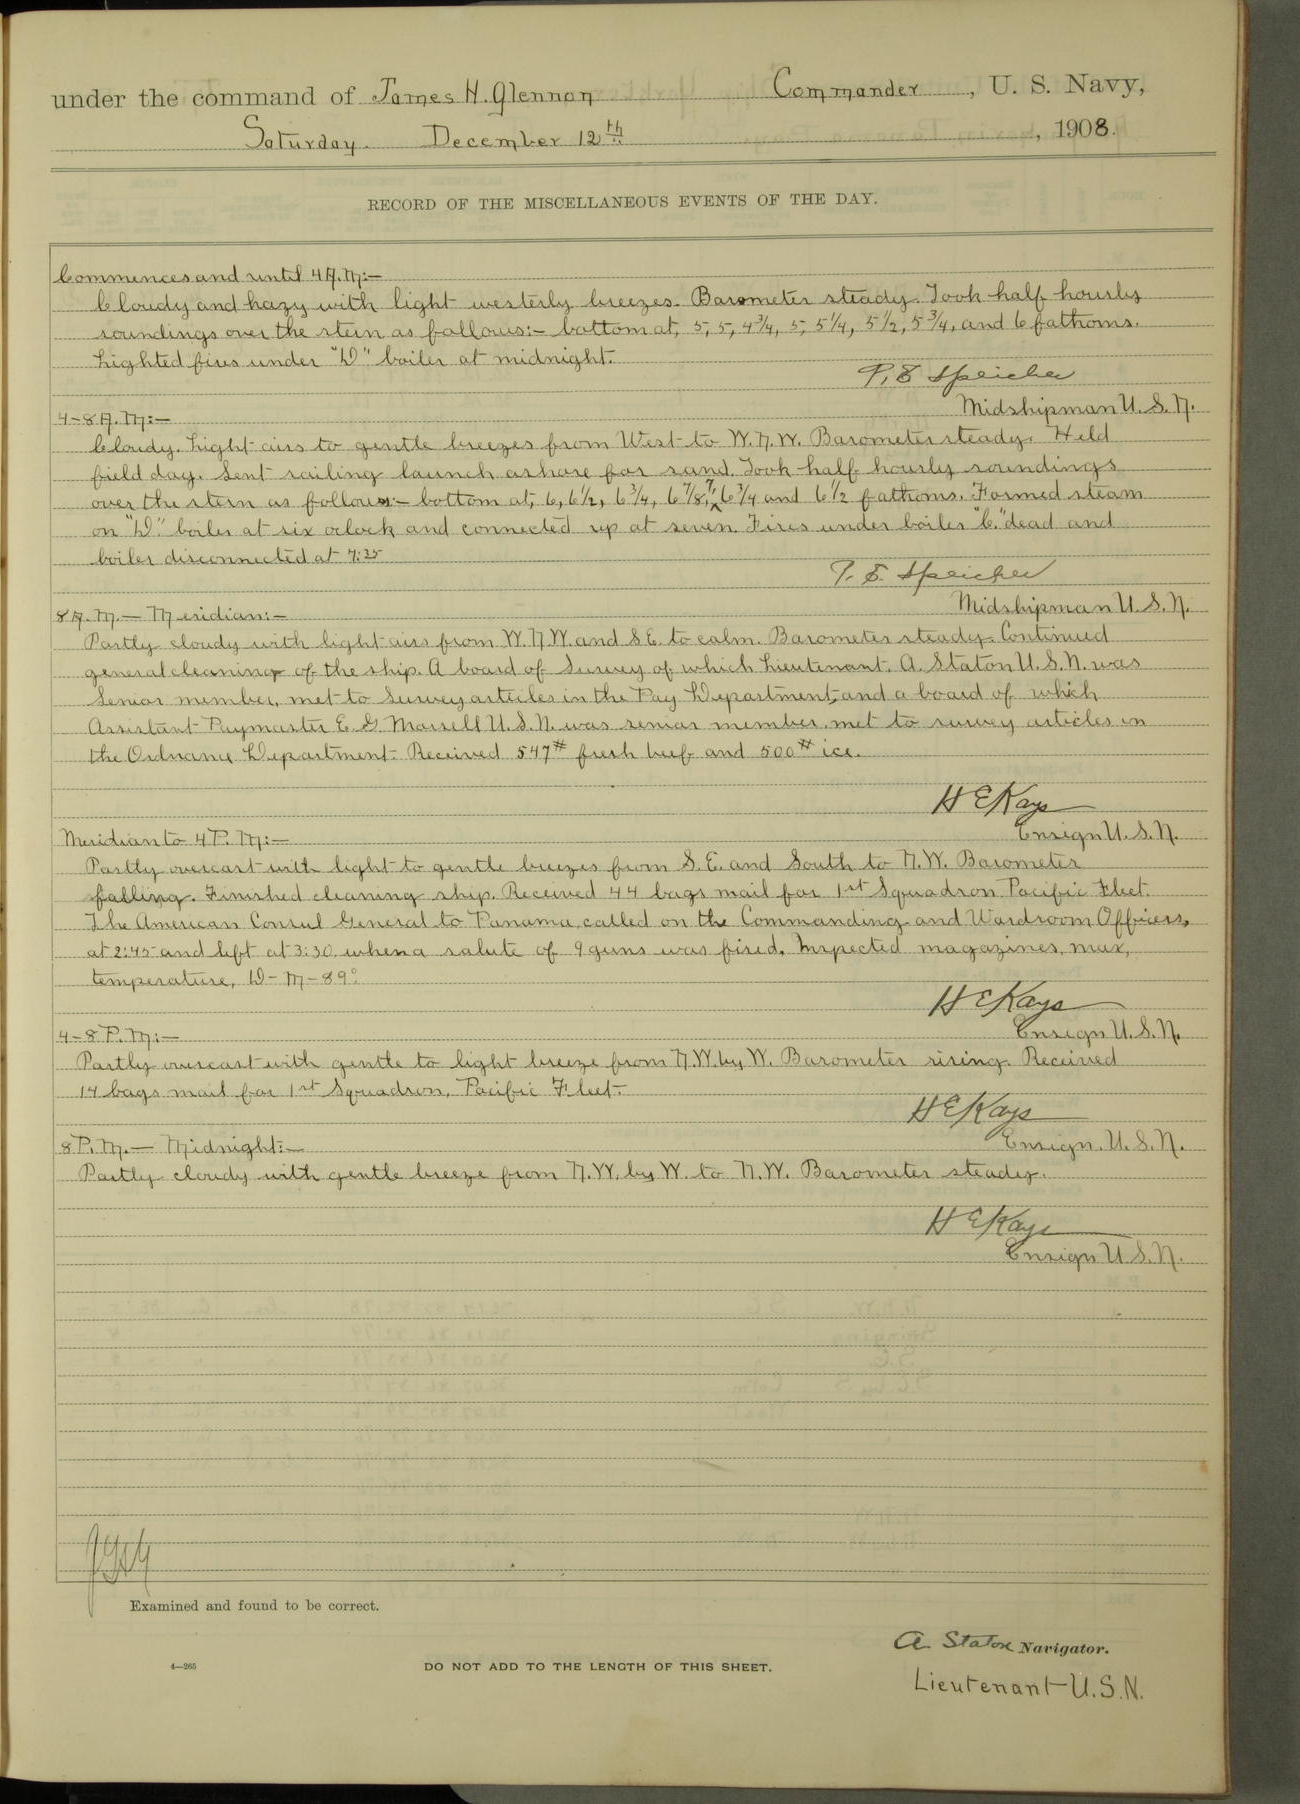 under the command of James H. Glennon Commander, U. S. Navy,
Saturday. December 12th, 1908.
RECORD OF THE MISCELLANEOUS EVENTS OF THE DAY.
Commences and until 4 A.M:—
Cloudy and hazy with light westerly breezes. Barometer steady. Took half hourly
soundings over the stern as follows:— bottom at, 5, 5, 4 3/4, 5, 5 1/4, 5 1/2, 5 3/4, and 6 fathoms.
Lighted fires under "D" boiler at midnight.
P. E. Speicher
Midshipman U. S. N.
4-8 A.M:—
Cloudy. Light airs to gentle breezes from West to W.N.W. Barometer steady. Held
field day. Sent sailing launch ashore for sand. Took half hourly soundings
over the stern as follows:— bottom at, 6, 6 1/2, 6 3/4, 6 7/8, 7, 6 3/4 and 6 1/2 fathoms. Formed steam
on "D" boiler at six oclock and connected up at seven. Fires under boiler "C." dead and
boiler disconnected at 7:25
P. E. Speicher
Midshipman U. S. N.
8 A.M.— Meridian:—
Partly cloudy with light airs from W.N.W. and S.E. to calm. Barometer steady. Continued
general cleaning of the ship. A board of Survey of which Lieutenant. A. Staton U.S.N. was
Senior member, met to Survey articles in the Pay Department, and a board of which
Assistant Paymaster E. G. Morsell U.S.N. was senior member, met to survey articles in
the Ordnance Department. Received 547# fresh beef and 500# ice.
H E Kays
Ensign U. S. N.
Meridian to 4 P. M:—
Partly overcast with light to gentle breezes from S.E. and South to N.W. Barometer
falling. Finished cleaning ship. Received 44 bags mail for 1st Squadron Pacific Fleet.
The American Consul General to Panama, called on the Commanding and Wardroom Officers,
at 2:45 and left at 3:30 when a salute of 9 guns was fired. Inspected magazines, max,
temperature, D-M-89°.
H E Kays
Ensign U. S. N.
4-8 P. M:—
Partly overcast with gentle to light breeze from N.W. by W. Barometer rising. Received
14 bags mail for 1st Squadron, Pacific Fleet.
H E Kays
Ensign. U. S. N.
8 P. M.— Midnight:—
Partly cloudy with gentle breeze from N.W. by W. to N.W. Barometer steady.
H E Kays
Ensign U. S. N.
JHG
Examined and found to be correct.
A. Staton Navigator.
4—265 DO NOT ADD TO THE LENGTH OF THIS SHEET.
Lieutenant U.S.N.